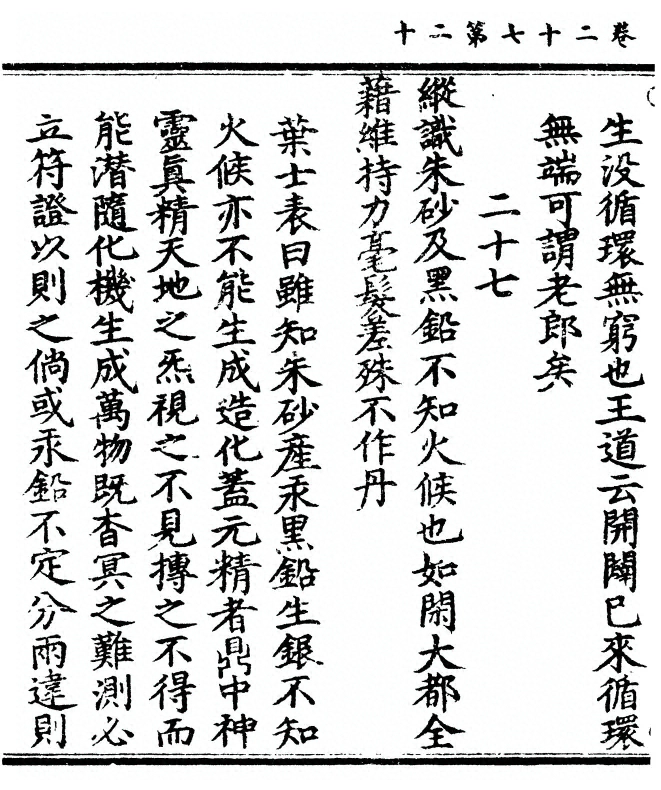 卷二十七第二十
生没循環無窮也王道云開闢已來循環
無端可謂老郎矣
二十七
縱識朱砂及黑鉛不知火候也如閑大都全
藉維持力毫髮差殊不作丹
葉士表曰雖知朱砂產汞黑鉛生銀不知
火候亦不能生成造化蓋元精者鼎中神
靈真精天地之炁視之不見摶之不得而
能潛隨化機生成萬物既杳冥之難測必
立符證以則之倘或汞鉛不定分兩違則